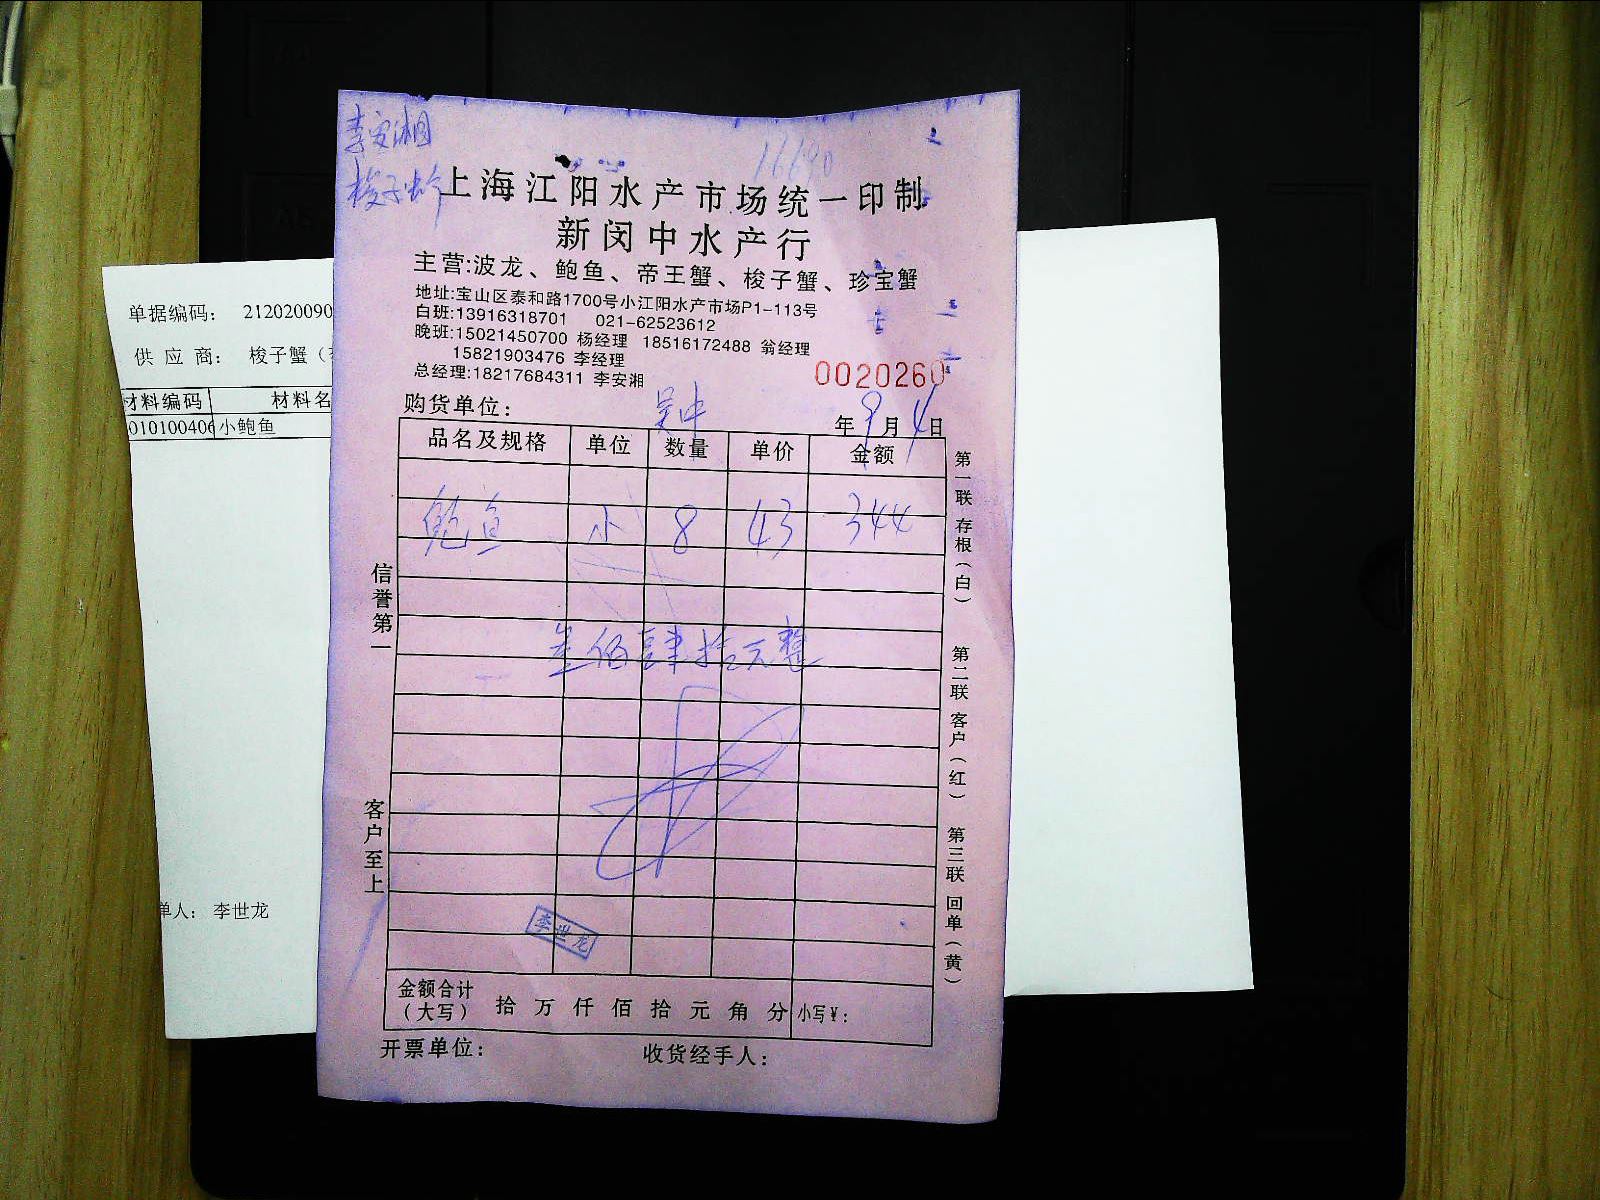 李安湘
梭子蟹
16690
上海江阳水产市场统一印制
新闵中水产行
主营:波龙、鲍鱼、帝王蟹、梭子蟹、珍宝蟹
地址:宝山区泰和路1700号小江阳水产市场P1-113号
白班:13916318701 021-62523612
晚班:15021450700 杨经理 18516172488 翁经理
15821903476 李经理
总经理:18217684311 李安湘
0020260
购货单位: 吴中 年 9 月 4 日
品名及规格 单位 数量 单价 金额
鲍鱼 小 8 43 344
叁佰肆拾元整
李世龙
金额合计(大写) 拾 万 仟 佰 拾 元 角 分 小写¥:
开票单位: 收货经手人:
信誉第一
客户至上
第一联存根(白)
第二联客户(红)
第三联回单(黄)
单据编码: 212020090
供应商: 梭子蟹(
材料编码 材料名
010100406 小鲍鱼
单人: 李世龙